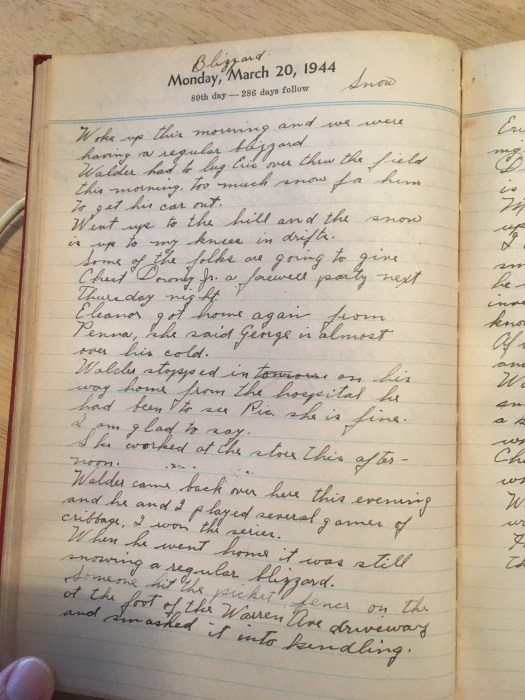 Blizzard
Monday, March 20, 1944
80th day—286 days follow
Snow
Woke up this morning and we were
having a regular blizzard
Walder had to lug Eric over thru the field
this morning. Too much snow for him
to get his car out.
Went up to the hill and the snow
is up to my knees in drifts.
Some of the folks are going to give
Chest Downy Jr. a farwell party next
Thursday night.
Eleanor got home again from
Penna, she said George is almost
over his cold.
Walder stopped in on his
way home from the hospital he
had been to see Pia. she is fine.
I am glad to say.
She worked at the store this after-
noon.
Walder came back over here this evening
and he and I played several games of
cribbage, I won the series.
When he went home it was still
snowing a regular blizzard.
Someone hit the picket fence on the
at the foot of the Warren Ave driveway
and smashed it into kindling.